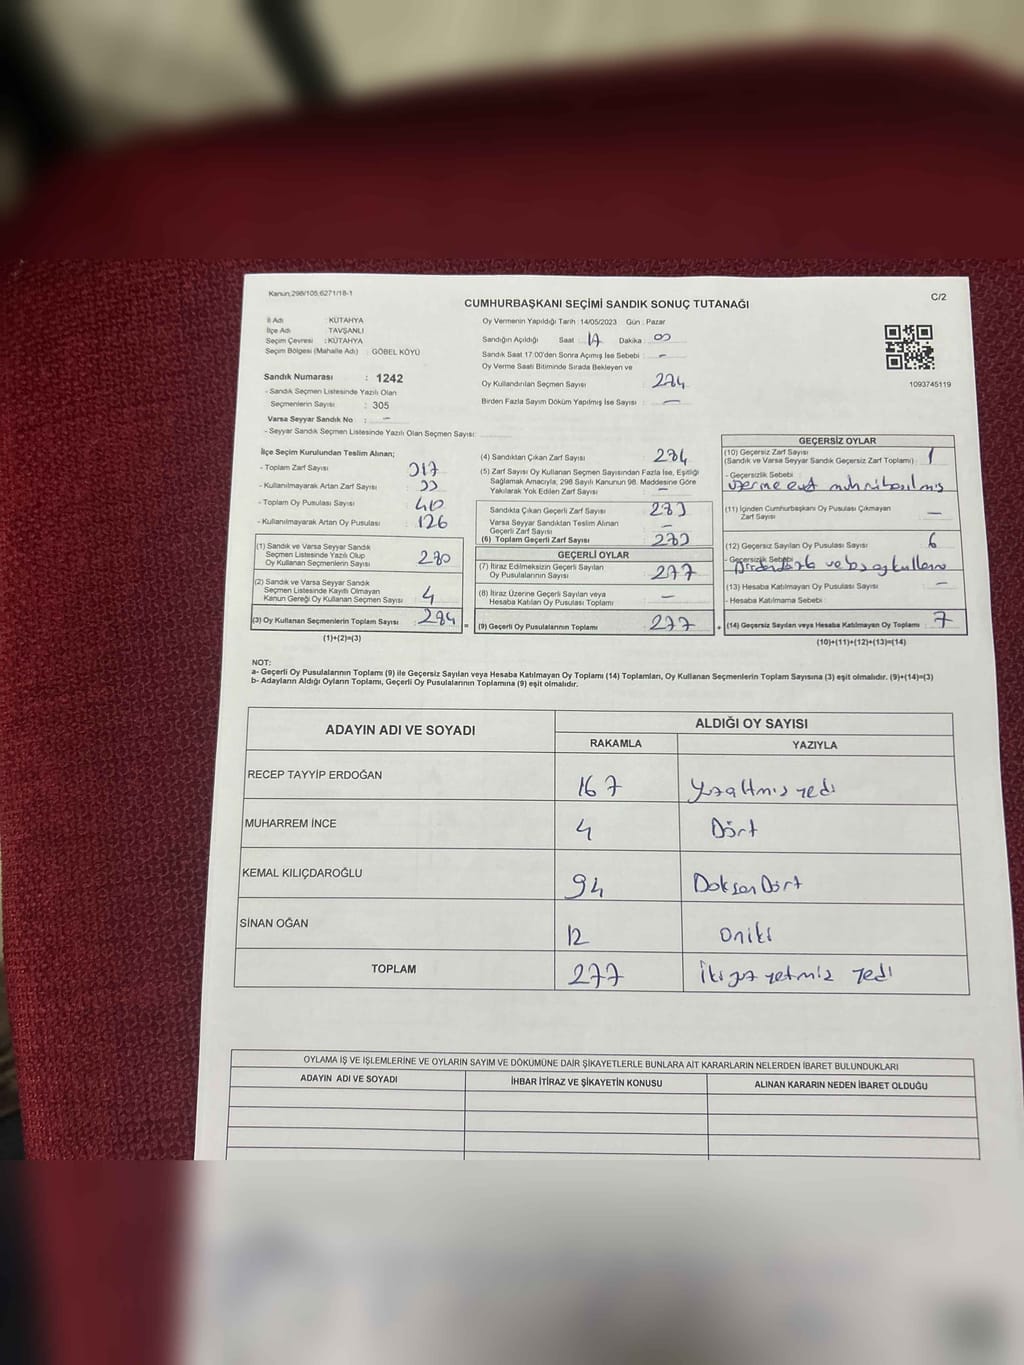 Kanun:298/105,6271/18-1
C/2
CUMHURBAŞKANI SEÇİMİ SANDIK SONUÇ TUTANAĞI
İl Adı : KÜTAHYA
İlçe Adı : TAVŞANLI
Seçim Çevresi : KÜTAHYA
Seçim Bölgesi (Mahalle Adı) : GÖBEL KÖYÜ
Sandık Numarası : 1242
- Sandık Seçmen Listesinde Yazılı Olan
Seçmenlerin Sayısı : 305
Varsa Seyyar Sandık No : -
- Seyyar Sandık Seçmen Listesinde Yazılı Olan Seçmen Sayısı:
Oy Vermenin Yapıldığı Tarih : 14/05/2023 Gün : Pazar
Sandığın Açıldığı Saat : 17 Dakika : 00
Sandık Saat 17:00'den Sonra Açımış İse Sebebi : -
Oy Verme Saati Bitiminde Sırada Bekleyen ve
Oy Kullandırılan Seçmen Sayısı : 284
Birden Fazla Sayım Döküm Yapılmış İse Sayısı : -
1093745119
İlçe Seçim Kurulundan Teslim Alınan;
- Toplam Zarf Sayısı 317
- Kullanılmayarak Artan Zarf Sayısı 33
- Toplam Oy Pusulası Sayısı 410
- Kullanılmayarak Artan Oy Pusulası 126
(1) Sandık ve Varsa Seyyar Sandık
Seçmen Listesinde Yazılı Olup
Oy Kullanan Seçmenlerin Sayısı : 280
(2) Sandık ve Varsa Seyyar Sandık
Seçmen Listesinde Kayıtlı Olmayan
Kanun Gereği Oy Kullanan Seçmen Sayısı : 4
(3) Oy Kullanan Seçmenlerin Toplam Sayısı : 284
(1)+(2)=(3)
(4) Sandıktan Çıkan Zarf Sayısı : 284
(5) Zarf Sayısı Oy Kullanan Seçmen Sayısından Fazla İse, Eşitliği
Sağlamak Amacıyla, 298 Sayılı Kanunun 98. Maddesine Göre
Yakılarak Yok Edilen Zarf Sayısı : -
Sandıkta Çıkan Geçerli Zarf Sayısı : 283
Varsa Seyyar Sandıktan Teslim Alınan
Geçerli Zarf Sayısı : -
(6) Toplam Geçerli Zarf Sayısı : 283
GEÇERLİ OYLAR
(7) İtiraz Edilmeksizin Geçerli Sayılan
Oy Pusulalarının Sayısı : 277
(8) İtiraz Üzerine Geçerli Sayılan veya
Hesaba Katılan Oy Pusulası Toplamı : -
= (9) Geçerli Oy Pusulalarının Toplamı : 277
GEÇERSİZ OYLAR
(10) Geçersiz Zarf Sayısı
(Sandık ve Varsa Seyyar Sandık Geçersiz Zarf Toplamı) : 1
- Geçersizlik Sebebi
üzerine evet mührü basılmış
(11) İçinden Cumhurbaşkanı Oy Pusulası Çıkmayan
Zarf Sayısı : -
(12) Geçersiz Sayılan Oy Pusulası Sayısı : 6
- Geçersizlik Sebebi
(13) Hesaba Katılmayan Oy Pusulası Sayısı : -
- Hesaba Katılmama Sebebi :
+ (14) Geçersiz Sayılan veya Hesaba Katılmayan Oy Toplamı : 7
(10)+(11)+(12)+(13)=(14)
NOT:
a- Geçerli Oy Pusulalarının Toplamı (9) ile Geçersiz Sayılan veya Hesaba Katılmayan Oy Toplamı (14) Toplamları, Oy Kullanan Seçmenlerin Toplam Sayısına (3) eşit olmalıdır. (9)+(14)=(3)
b- Adayların Aldığı Oyların Toplamı, Geçerli Oy Pusulalarının Toplamına (9) eşit olmalıdır.
ADAYIN ADI VE SOYADI
ALDIĞI OY SAYISI
RAKAMLA YAZIYLA
RECEP TAYYİP ERDOĞAN 167 Yüzaltmış yedi
MUHARREM İNCE 4 Dört
KEMAL KILIÇDAROĞLU 94 Doksan Dört
SİNAN OĞAN 12 oniki
TOPLAM 277 İkiyüz yetmiş yedi
OYLAMA İŞ VE İŞLEMLERİNE VE OYLARIN SAYIM VE DÖKÜMÜNE DAİR ŞİKAYETLERLE BUNLARA AİT KARARLARIN NELERDEN İBARET BULUNDUKLARI
ADAYIN ADI VE SOYADI İHBAR İTİRAZ VE ŞİKAYETİN KONUSU ALINAN KARARIN NEDEN İBARET OLDUĞU